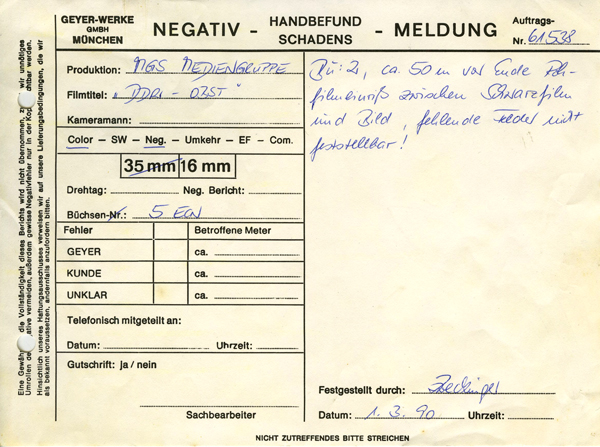 GEYER-WERKE
GMBH
MÜNCHEN
NEGATIV - HANDBEFUND SCHADENS - MELDUNG
Auftrags-
Nr. 61.538
Produktion: NGS MEDIENGRUPPE
Filmtitel: "DDR - OBST"
Kameramann:
Color – SW – Neg. – Umkehr – EF – Com.
35 mm 16 mm
Drehtag: Neg. Bericht:
Büchsen-Nr.: 5 ECN
Fehler Betroffene Meter
GEYER ca.
KUNDE ca.
UNKLAR ca.
Telefonisch mitgeteilt an:
Datum: Uhrzeit:
Gutschrift: ja / nein
Sachbearbeiter
Bü: 2, ca. 50 m vor Ende Roh-
filmeinriß zwischen Schwarzfilm
und Bild, fehlende Felder nicht
feststellbar!
Festgestellt durch:
Datum: 1.3.90 Uhrzeit:
NICHT ZUTREFFENDES BITTE STREICHEN
Eine Gewähr die Vollständigkeit dieses Berichts wird nicht übernommen, wir unnötiges
Umrollen ative vermeiden, außerdem gewisse Negativfehler nur in der Kop htbar werden.
Hinsichtlich unseres Haftungsausschlusses verweisen wir auf unsere Lieferungsbedingungen, die wir
als bekannt voraussetzen, andernfalls anzufordern bitten.